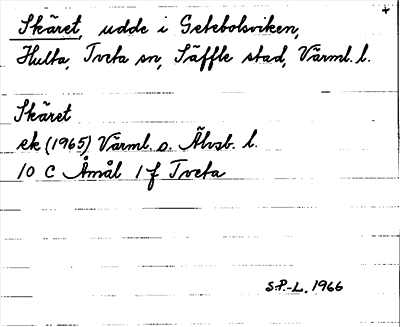 Skäret, udde i Getebolsviken,
Hulta, Tveta sn, Säffle stad, Värml. l.
Skäret
ek (1965) Värml. o. Älvsb. l.
10 C Åmål 1 f Tveta
S.P.-L. 1966